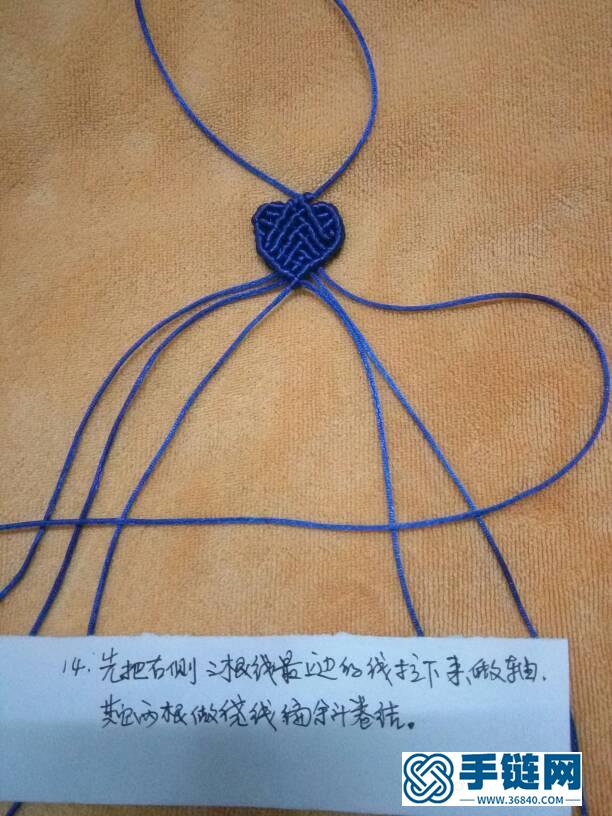 14. 先把右侧三根线最边的线拉下来做轴.
其它两根做绕线编斜卷结。
手链网
WWW.36840.COM